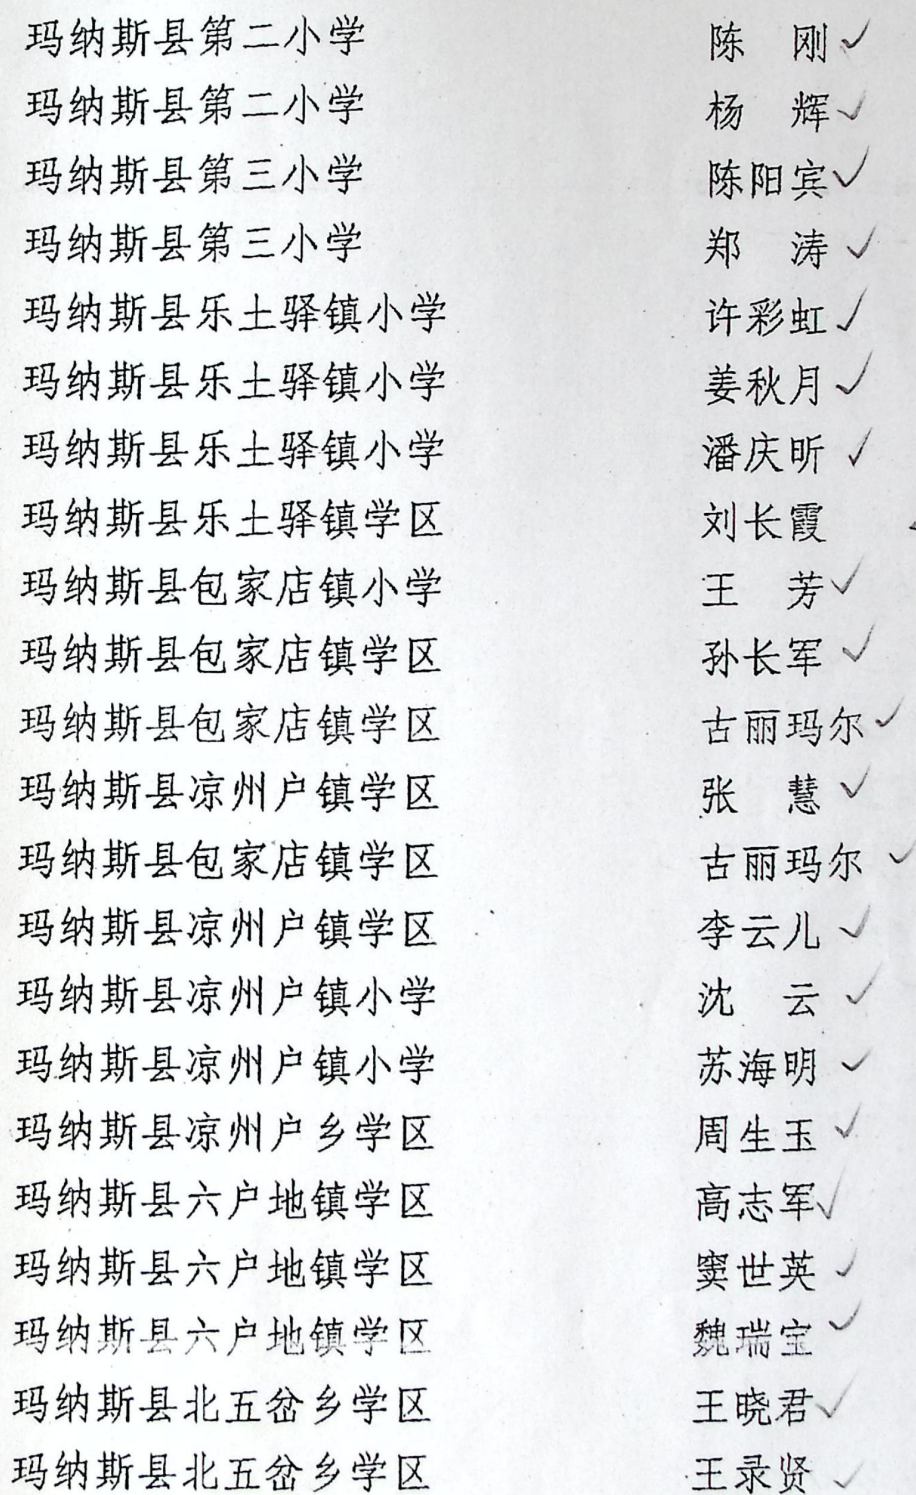 玛纳斯县第二小学 陈 刚
玛纳斯县第二小学 杨 辉
玛纳斯县第三小学 陈阳宾
玛纳斯县第三小学 郑 涛
玛纳斯县乐土驿镇小学 许彩虹
玛纳斯县乐土驿镇小学 姜秋月
玛纳斯县乐土驿镇小学 潘庆昕
玛纳斯县乐土驿镇学区 刘长霞
玛纳斯县包家店镇小学 王 芳
玛纳斯县包家店镇学区 孙长军
玛纳斯县包家店镇学区 古丽玛尔
玛纳斯县凉州户镇学区 张 慧
玛纳斯县包家店镇学区 古丽玛尔
玛纳斯县凉州户镇学区 李云儿
玛纳斯县凉州户镇小学 沈 云
玛纳斯县凉州户镇小学 苏海明
玛纳斯县凉州户乡学区 周生玉
玛纳斯县六户地镇学区 高志军
玛纳斯县六户地镇学区 窦世英
玛纳斯县六户地镇学区 魏瑞宝
玛纳斯县北五岔乡学区 王晓君
玛纳斯县北五岔乡学区 王录贤